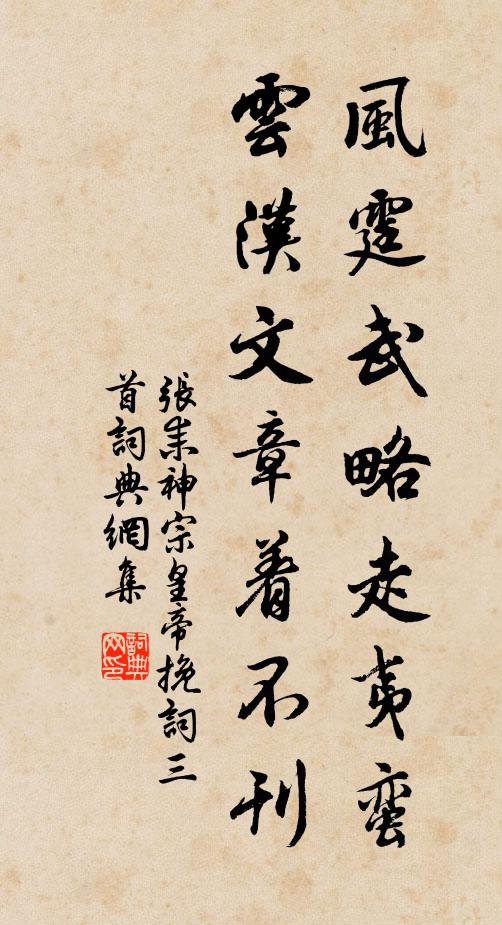 風霆武略走夷蠻
雲漢文章着不刊
張耒神宗皇帝挽詞三
首詞典網集
詞典网印